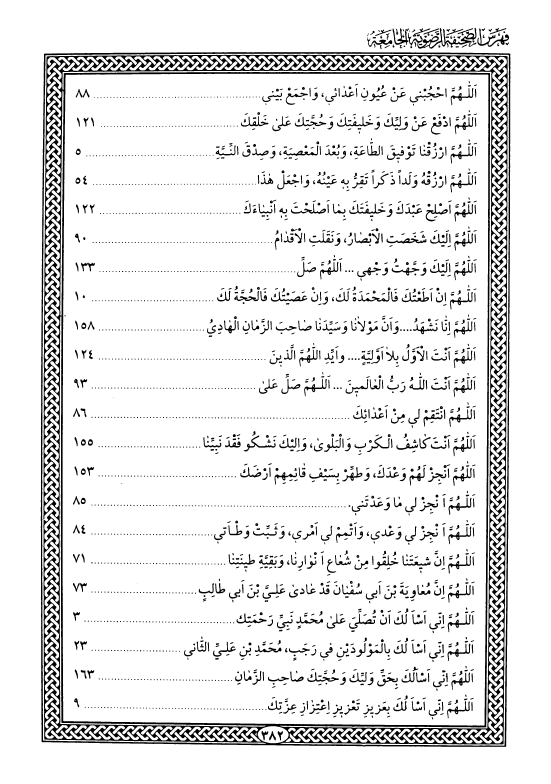 فهرس الصّحيفة الرّضويّة الجامعة
اَللّٰـهُمَّ احْجُبْني عَنْ عُيُونِ اَعْدٰائي، وَاجْمَعْ بَيْني ........ ٨٨
اَللّٰهُمَّ ادْفَعْ عَنْ وَلِيِّكَ وَخَليفَتِكَ وَحُجَّتِكَ عَلىٰ خَلْقِكَ ........ ١٢١
اَللّٰـهُمَّ ارْزُقْنٰا تَوْفيقَ الطّٰاعَةِ، وَبُعْدَ الْمَعْصِيَةِ، وَصِدْقَ النِّـيَّةِ ........ ٥
اَللّٰـهُمَّ ارْزُقْهُ وَلَداً ذَكَراً تَقِرُّ بِهِ عَيْنُهُ، وَاجْعَلْ هٰذٰا ........ ٥٤
اَللّٰهُمَّ اَصْلِحْ عَبْدَكَ وَخَليفَتَكَ بِمٰا اَصْلَحْتَ بِهِ اَنْبِيٰاءَكَ ........ ١٢٢
اَللّٰهُمَّ اِلَيْكَ شَخَصَتِ الْاَبْصٰارُ، وَنَقَلَتِ الْاَقْدٰامُ ........ ٩٠
اَللّٰهُمَّ اِلَيْكَ وَجَّهْتُ وَجْهي ... اَللّٰهُمَّ صَلِّ ........ ١٣٣
اَللّٰـهُمَّ اِنْ اَطَعْتُكَ فَالْمَحْمَدَةُ لَكَ، وَاِنْ عَصَيْتُكَ فَالْحُجَّةُ لَكَ ........ ١٠
اَللّٰهُمَّ اِنّٰا نَشْهَدُ.... وَاَنَّ مَوْلاٰنٰا وَسَيِّدَنٰا صٰاحِبَ الزَّمٰانِ الْهٰادِيُ ........ ١٥٨
اَللّٰهُمَّ اَنْتَ الْاَوَّلُ بِلاٰ اَوَّلِيَّةٍ.... وايِّدِ اللّٰهُمَّ الَّذينَ ........ ١٢٤
اَللّٰهُمَّ اَنْتَ اللّٰـهُ رَبُّ الْعٰالَمينَ ... اَللّٰـهُمَّ صَلِّ عَلىٰ ........ ٩٣
اَللّٰـهُمَّ انْتَقِمْ لي مِنْ اَعْدٰائِكَ ........ ٨٦
اَللّٰهُمَّ اَنْتَ كٰاشِفُ الْـكَرْبِ وَالْبَلْوىٰ، وَاِلَيْكَ نَشْـكُو فَقْدَ نَبِيِّنٰا ........ ١٥٥
اَللّٰهُمَّ اَنْجِزْ لَهُمْ وَعْدَكَ، وَطَهِّرْ بِسَيْفِ قٰائِمِهِمْ اَرْضَكَ ........ ١٥٣
اَللّٰـهُمَّ اَ نْجِزْ لي مٰا وَعَدْتَني ........ ٨٥
اَللّٰـهُمَّ اَ نْجِزْ لي وَعْدي، وَاَتْمِمْ لي اَمْري، وَثَـبِّتْ وَطْـاَتي ........ ٨٤
اَللّٰـهُمَّ اِنَّ شيعَتَنٰا خُلِقُوا مِنْ شُعٰاعِ اَ نْوٰارِنٰا، وَبَقِيَّةِ طينَتِنٰا ........ ٧١
اَللّٰـهُمَّ اِنَّ مُعٰاوِيَةَ بْنَ اَبي سُفْيٰانَ قَدْ عٰادىٰ عَلِيَّ بْنَ اَبي طٰالِبٍ ........ ٧٣
اَللّٰـهُمَّ اِنّي اَسْاَ لُكَ اَنْ تُصَلِّيَ عَلىٰ مُحَمَّدٍ نَبِيِّ رَحْمَتِكَ ........ ٣
اَللّٰـهُمَّ اِنّي اَسْاَ لُكَ بِالْمَوْلُودَيْنِ في رَجَبٍ، مُحَمَّدِ بْنِ عَلِيٍّ الثّٰاني ........ ٢٣
اَللّٰهُمَّ اِنّي اَسْاَلُكَ بِحَقِّ وَلِيِّكَ وَحُجَّتِكَ صٰاحِبِ الزَّمٰانِ ........ ١٦٣
اَللّٰـهُمَّ اِنّي اَسْاَ لُكَ بِعَزيزِ تَعْزيزِ اِعْتِزٰازِ عِزَّتِكَ ........ ٩
٣٨٢